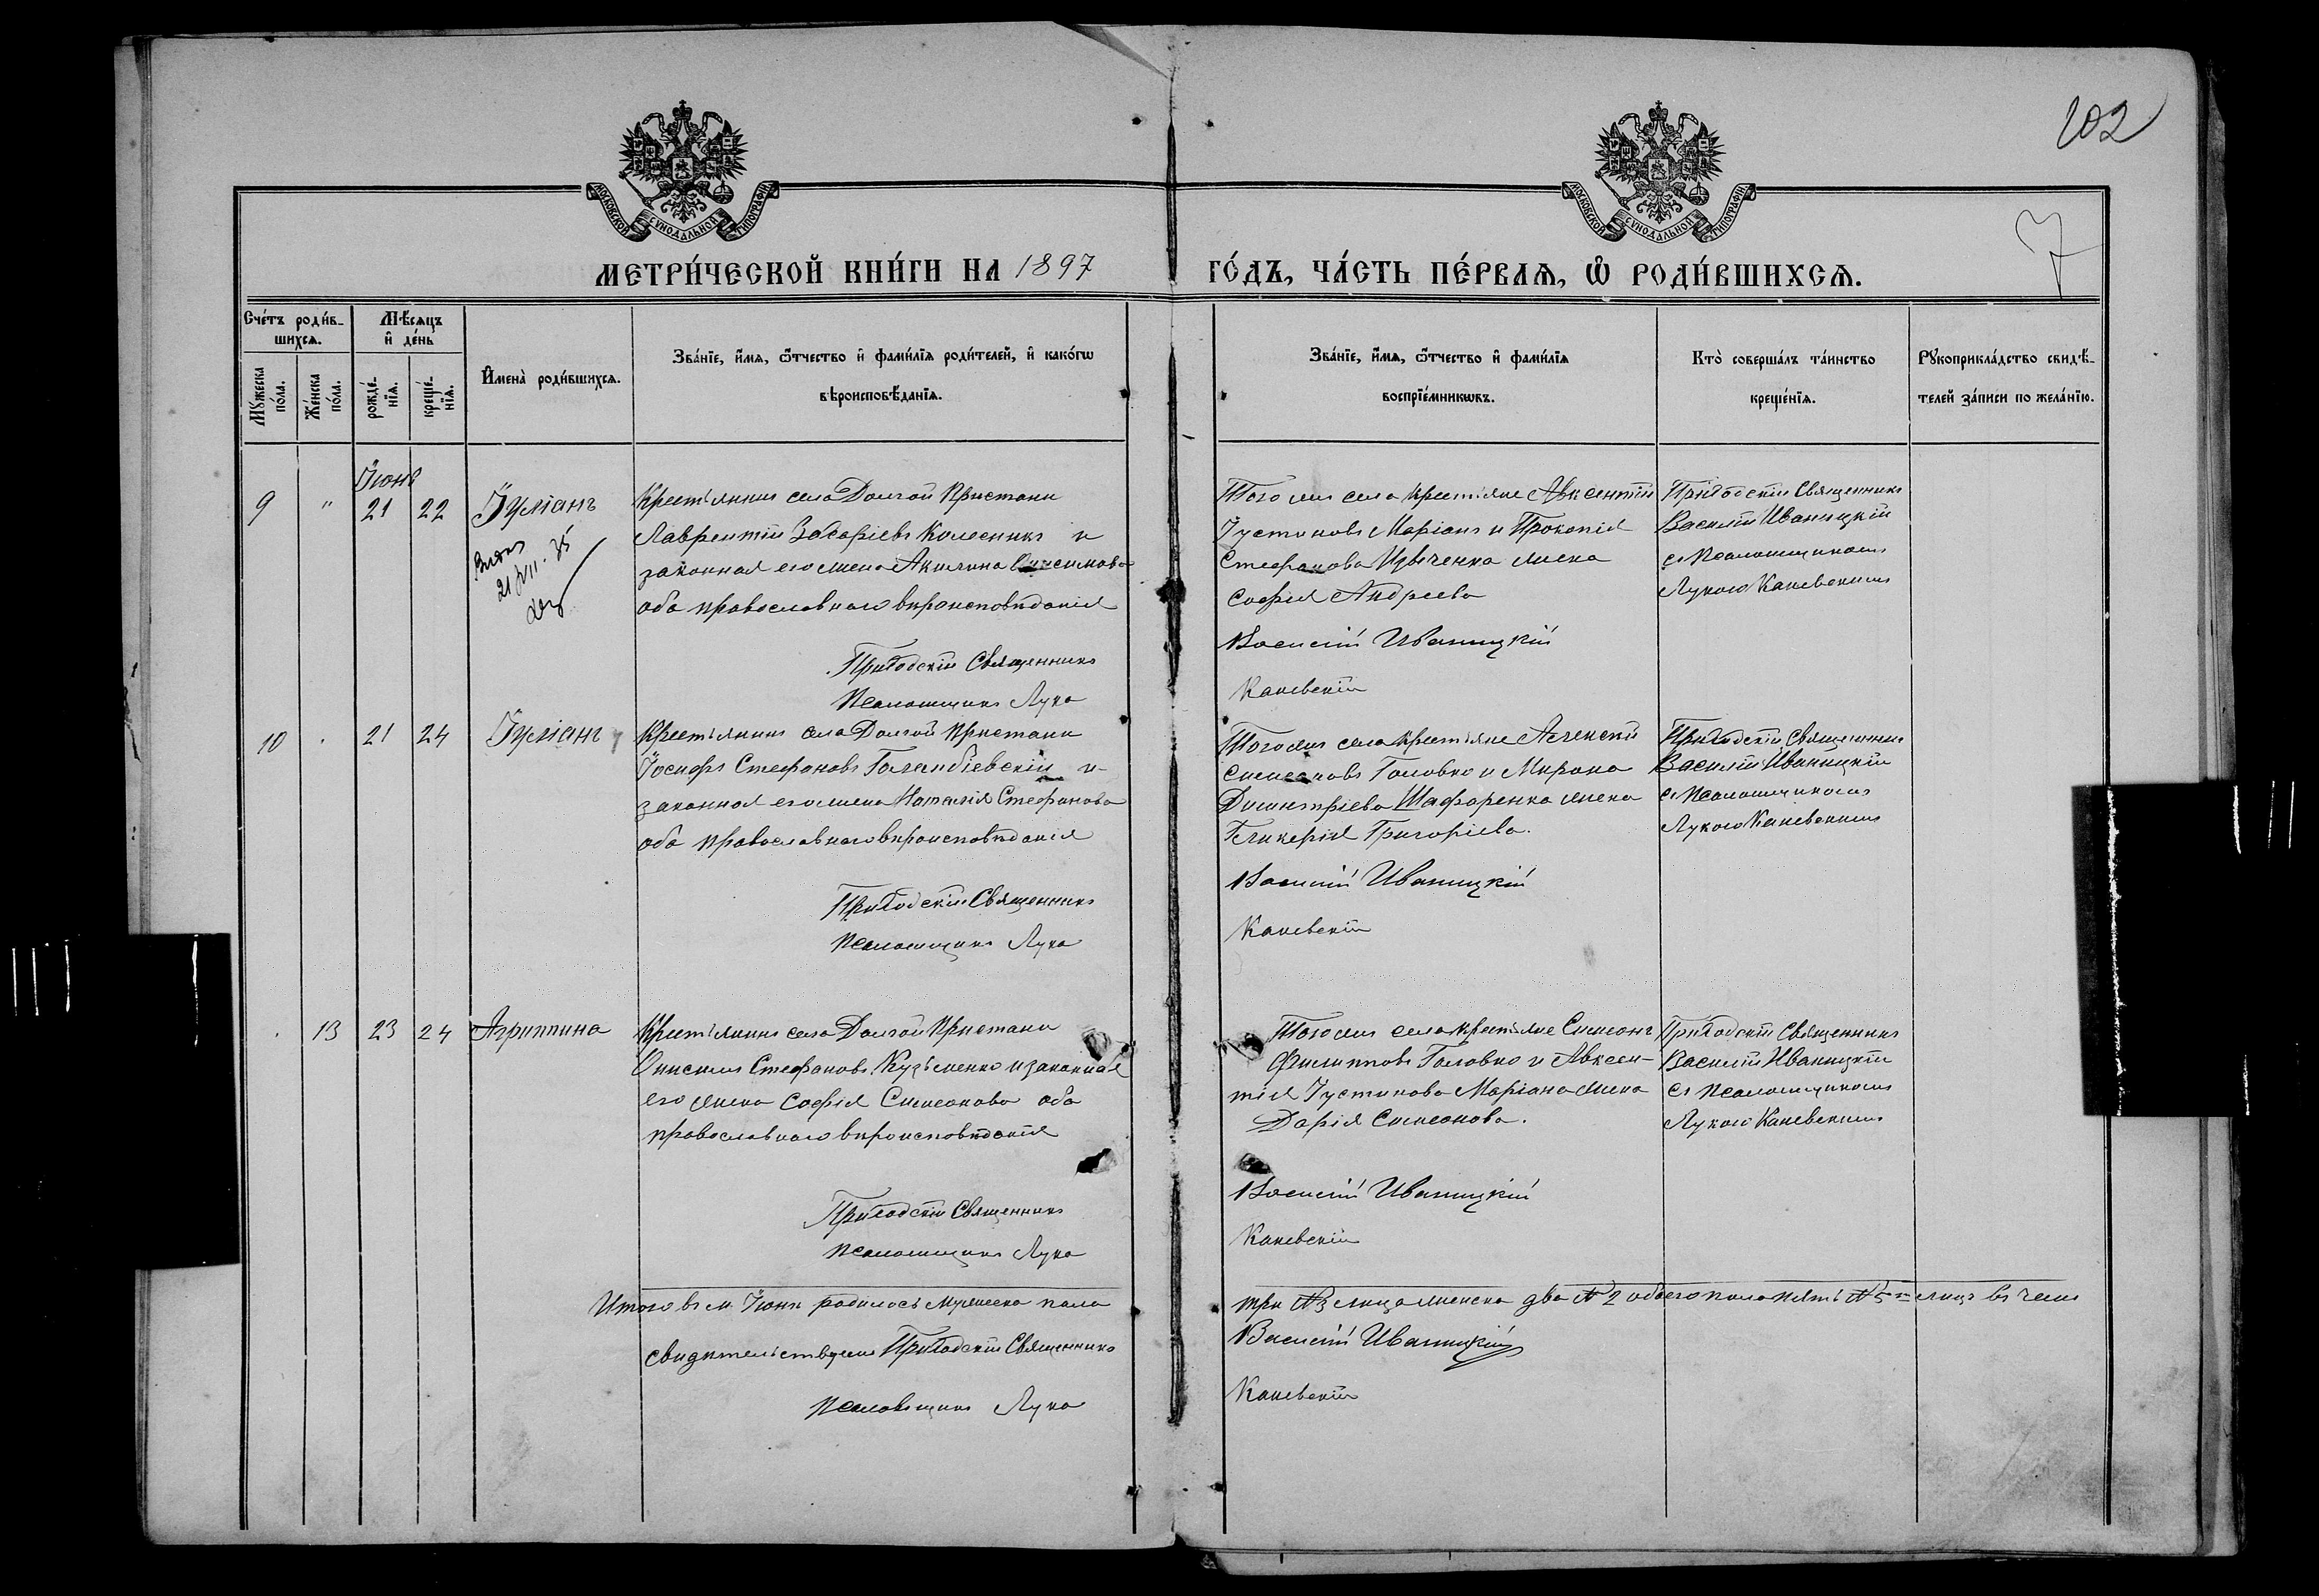 102
7
МОСКОВСКОЙ СѴНОДАЛЬНОЙ ТИПОГРАФІИ
МОСКОВСКОЙ СѴНОДАЛЬНОЙ ТИПОГРАФІИ
МЕТРИ́ЧЕСКОЙ КНИ́ГИ НА 1897 ГО́ДЪ, ЧА́СТЬ ПЕ́РВАѦ, Ѡ҆ РОДИ́ВШИХСѦ.
Сче́тъ роди́в-
шихсѧ.
Мꙋ́жеска по́ла.
Же́нска по́ла.
Мѣ́сѧцъ
и҆ де́нь
рожде́-
нїѧ.
креще́-
нїѧ.
И҆мена̀ роди́вшихсѧ.
Зва́нїе, и҆́мѧ, ѻ҆́тчество и҆ фами́лїѧ роди́телей, и҆ како́гѡ
вѣроисповѣ́данїѧ.
Зва́нїе, и҆́мѧ, ѻ҆́тчество и҆ фами́лїѧ
воспрїе́мникѡвъ.
Кто̀ соверша́лъ та́инство
креще́нїѧ.
Рꙋкоприкла́дство свидѣ́-
телей за́писи по жела́нїю.
Іюнь
9 " 21 22 Іуліанъ
21/VII. 35
Крестьянинъ села Долгой Пристани
Лаврентій Захаріевъ Колесникъ и
законная его жена Акилина Онисимова
оба православнаго вѣроисповѣданія
Приходскій Священникъ
Псаломщикъ Лука
Того же села крестьяне Авксентій
Іустиновъ Маріанъ и Прокопія
Стефанова жена
Софія Андреева
Василій Иваницкій
Каневскій
Приходскій Священникъ
Василій Иваницкій
съ Псаломщикомъ
Лукою Каневскимъ
10 21 24 Іуліанъ
Крестьянинъ села Долгой Пристани
Іосифъ Стефановъ и
законная его жена Наталія Стефанова
оба православнаго вѣроисповѣданія
Приходскій Священникъ
Псаломщикъ Лука
Того же села крестьяне
Симеоновъ Головко и Мирона
Димитріева Шафаренка жена
Гликерія Григоріева.
Василій Иваницкій
Каневскій
Приходскій Священникъ
Василій Иваницкій
съ Псаломщикомъ
Лукою Каневскимъ
13 23 24 Агриппина
Крестьянинъ села Долгой Пристани
Онисимъ Стефановъ Кузьменко и законная
его жена Софія Симеонова оба
православнаго вѣроисповѣданія
Приходскій Священникъ
Псаломщикъ Лука
Того же села крестьяне Симеонъ
Филипповъ Головко и Авксен-
тія Іустинова Маріана жена
Дарія Симеонова.
Василій Иваницкій
Каневскій
Приходскій Священникъ
Василій Иваницкій
съ Псаломщикомъ
Лукою Каневскимъ
Итого въ м. Іюнѣ родилось мужеска пола три №3 лица женска два №2 обоего пола пять №5 лицъ въ чемъ
свидѣтельствуемъ Приходскій Священникъ Василій Иваницкій
Псаломщикъ Лука Каневскій